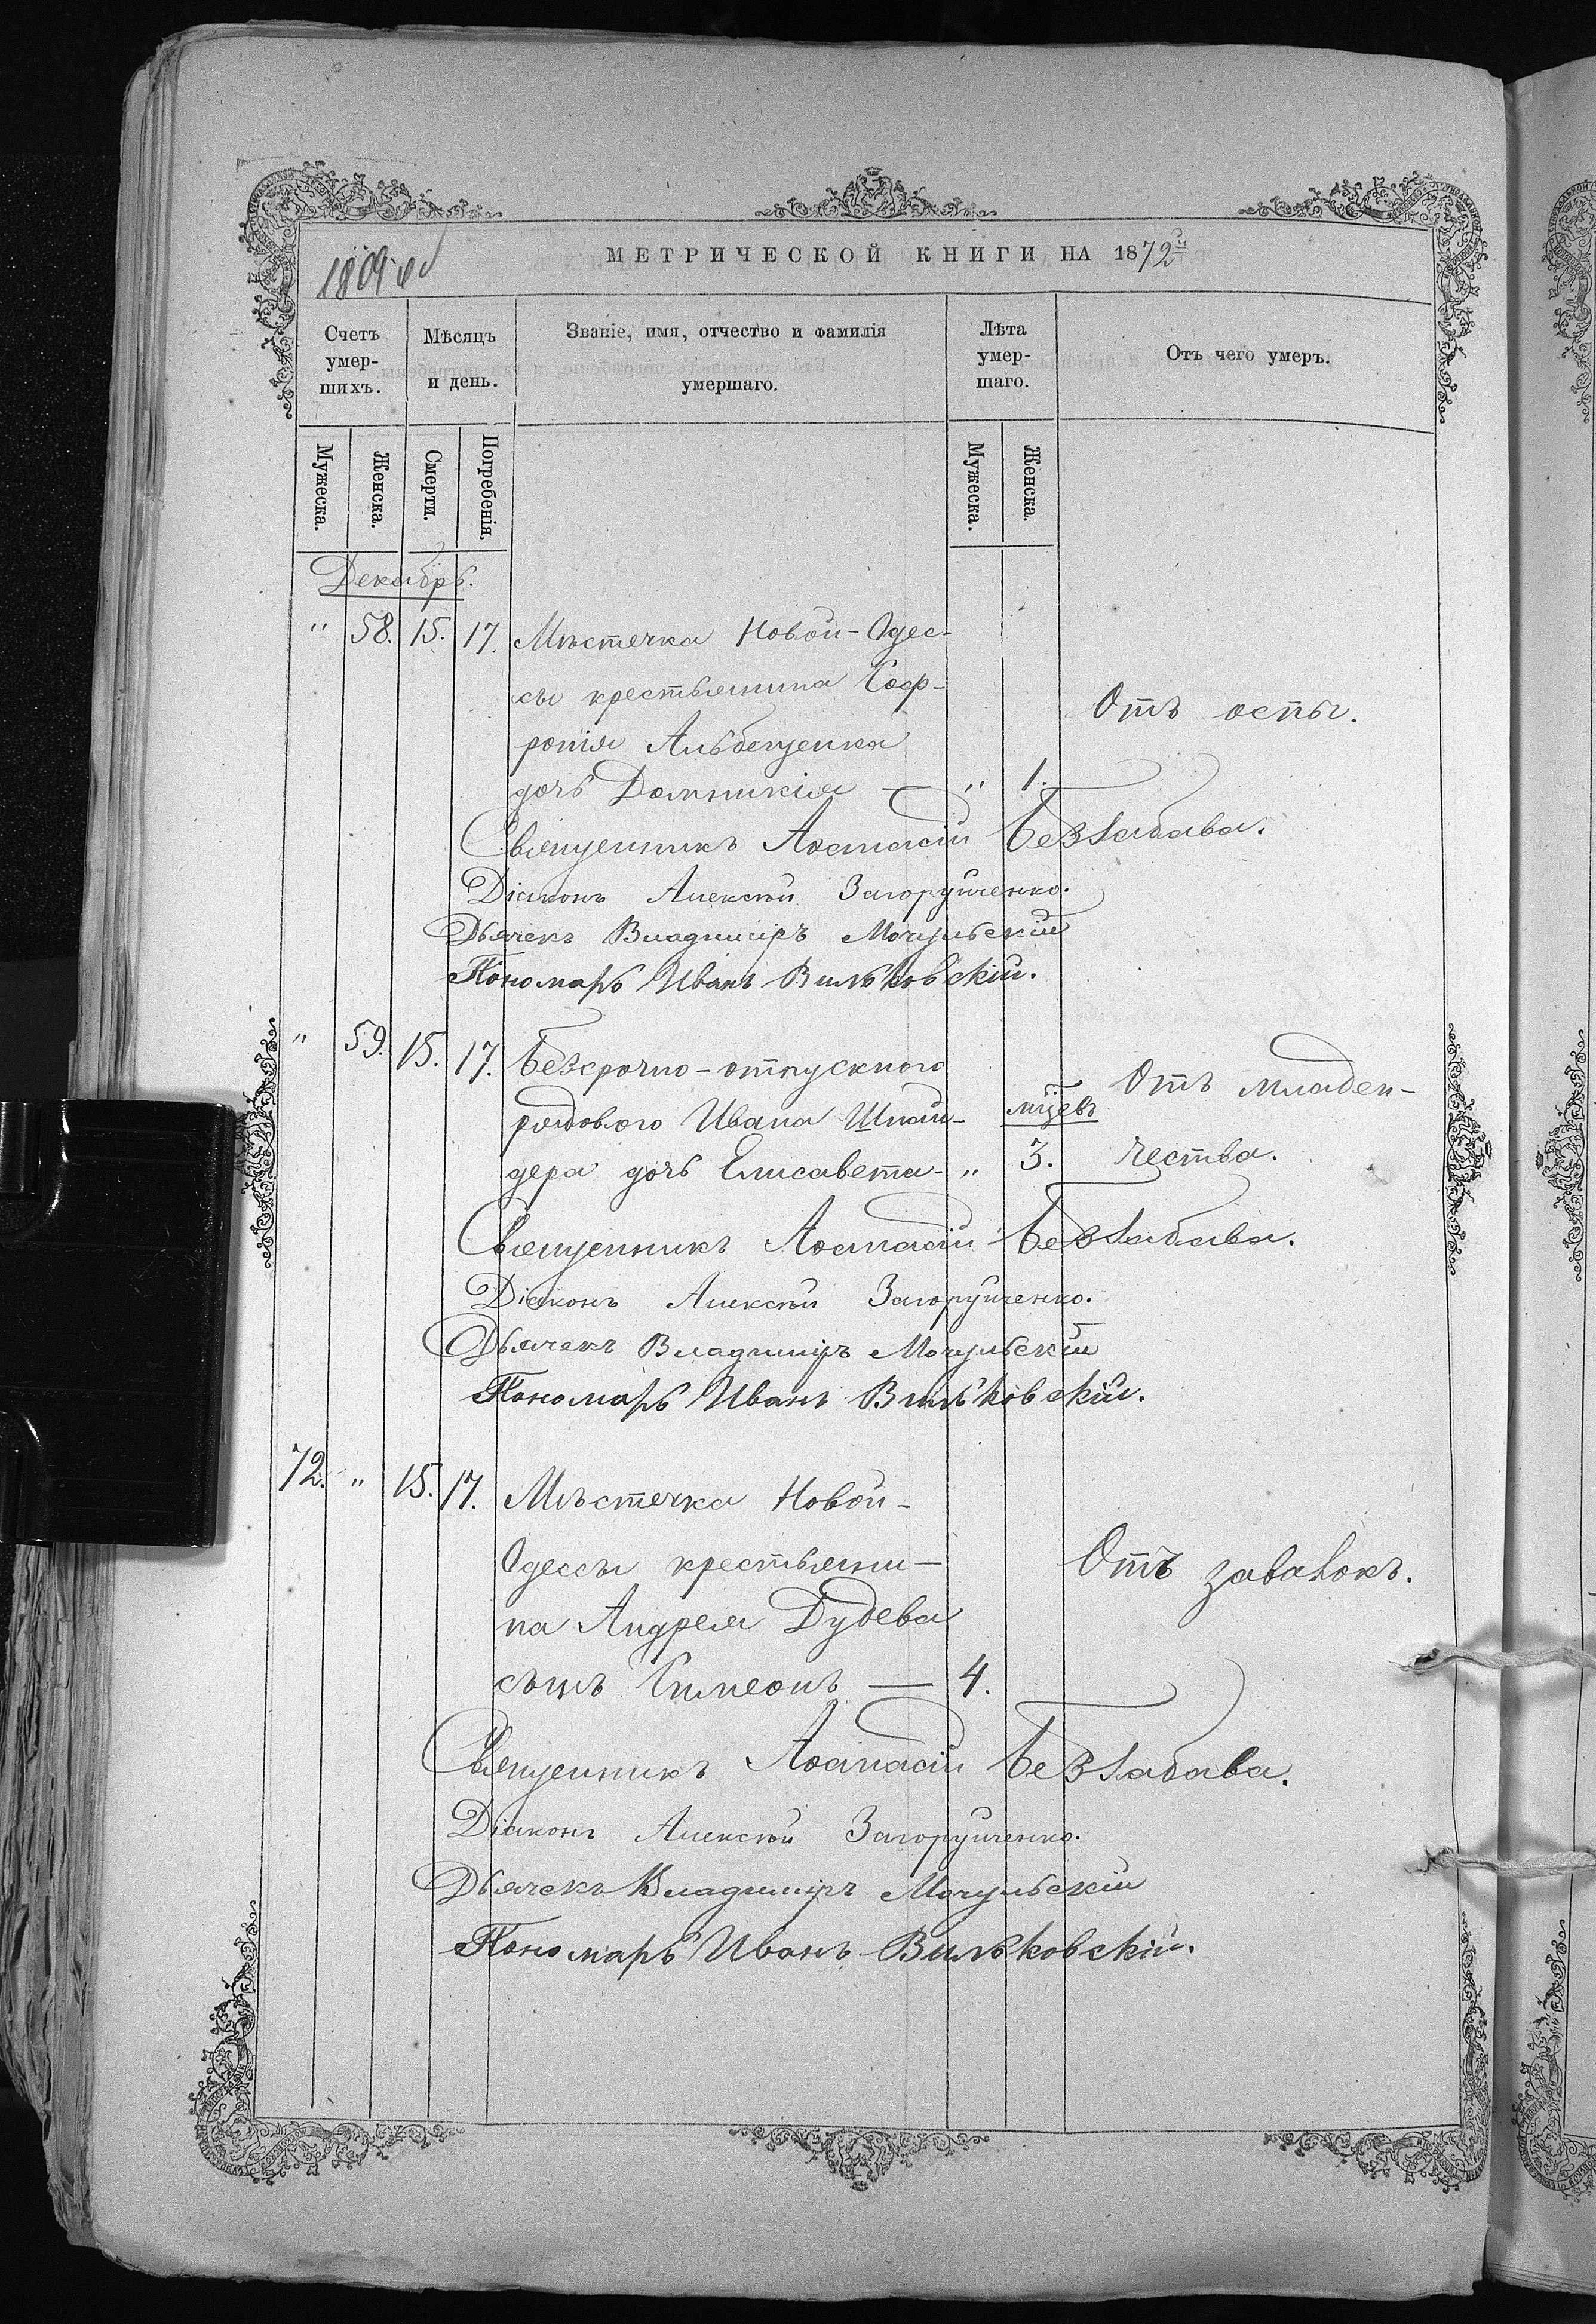 МЕТРИЧЕСКОЙ КНИГИ НА 1872
Счетъ умер-шихъ.
Мѣсяцъ и день.
Званіе, имя, отчество и фамилія умершаго.
Лѣта умер-шаго.
Отъ чего умеръ.
Мужеска.
Женска.
Смерти.
Погребенія.
Мужеска.
Женска.
Декабрь.
" 58. 15. 17. Мѣстечка Новой-Одес-
сы крестьянина Соф-
ронія
Отъ оспы.
дочь Домникія — " 1.
Священникъ Аѳанасій Беззабава.
Діаконъ Алексѣй Загоруйченко.
Дьячекъ Владиміръ Мочульскій
Пономарь Иванъ Вильковскій.
" 59. 15. 17. Безсрочно-отпускного
Отъ младен-
рядового Ивана Шнай- мцевъ
дера дочь Елисавета - " 3. чества.
Священникъ Аѳанасій Беззабава.
Діаконъ Алексѣй Загоруйченко.
Дьячекъ Владиміръ Мочульскій
Пономарь Иванъ Вильковскій.
72. " 15. 17. Мѣстечка Новой-
Одессы крестьяни-
Отъ завалокъ.
на Андрея Дудева
сынъ Симеонъ — 4.
Священникъ Аѳанасій Беззабава.
Діаконъ Алексѣй Загоруйченко.
Дьячекъ Владиміръ Мочульскій
Пономарь Иванъ Вильковскій.